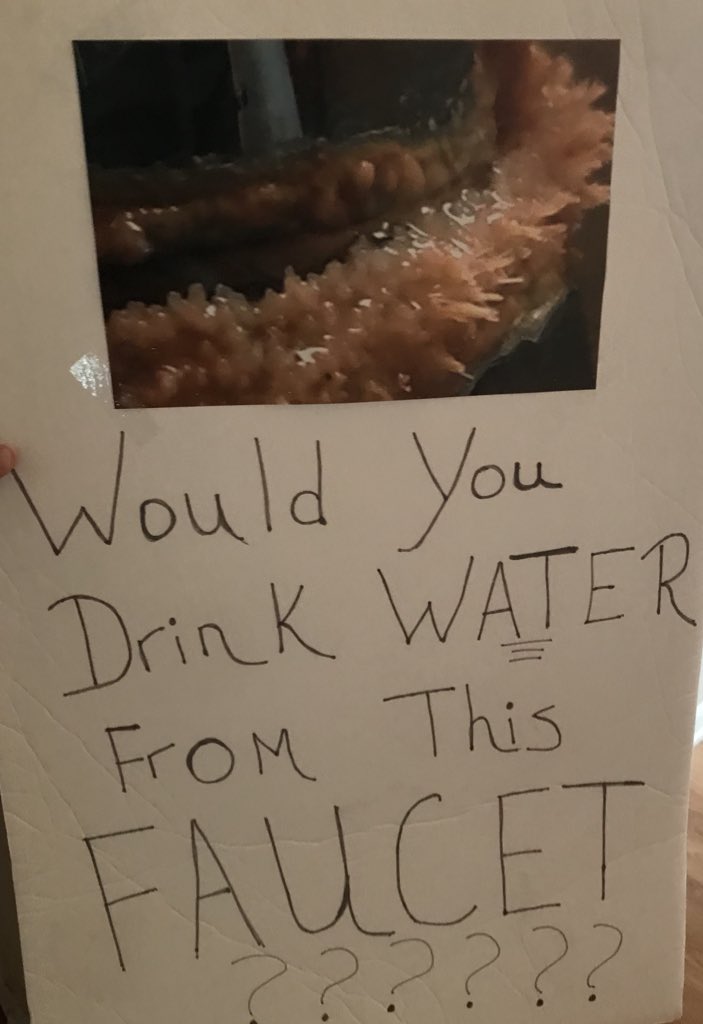 Would You
Drink WATER
From This
FAUCET
??????